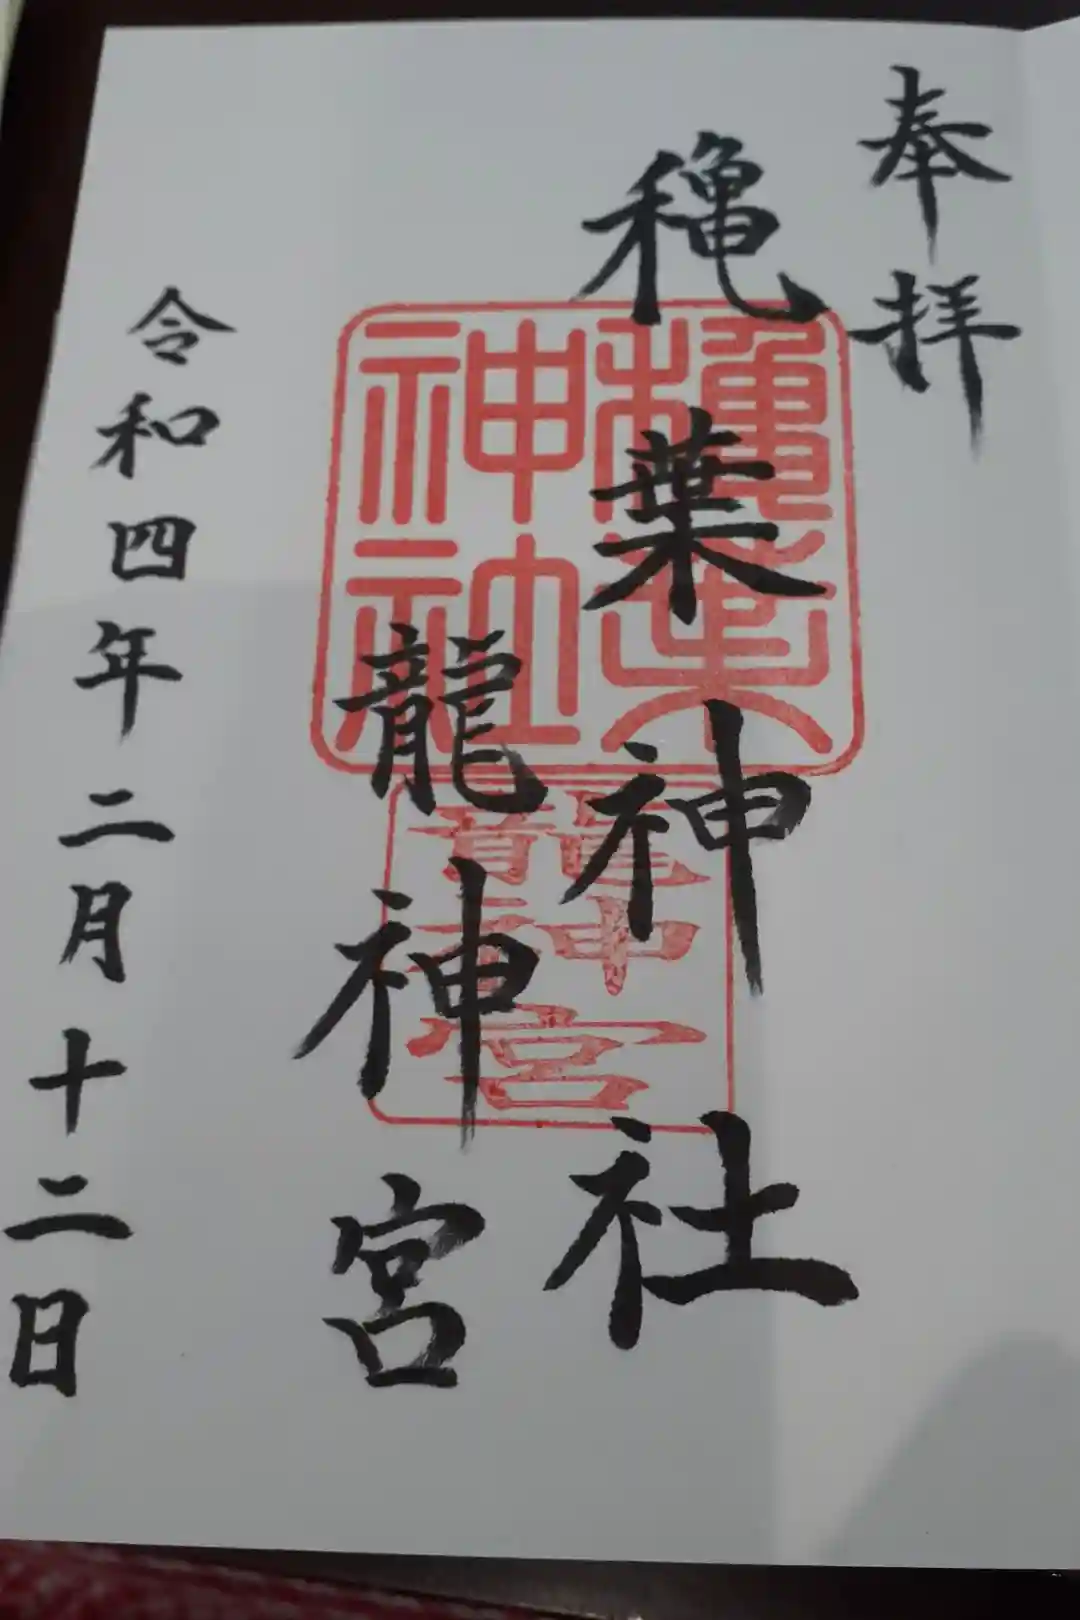 奉拝
穐葉神社
龍神宮
令和四年二月十二日
穐葉
神社
龍
神
宮